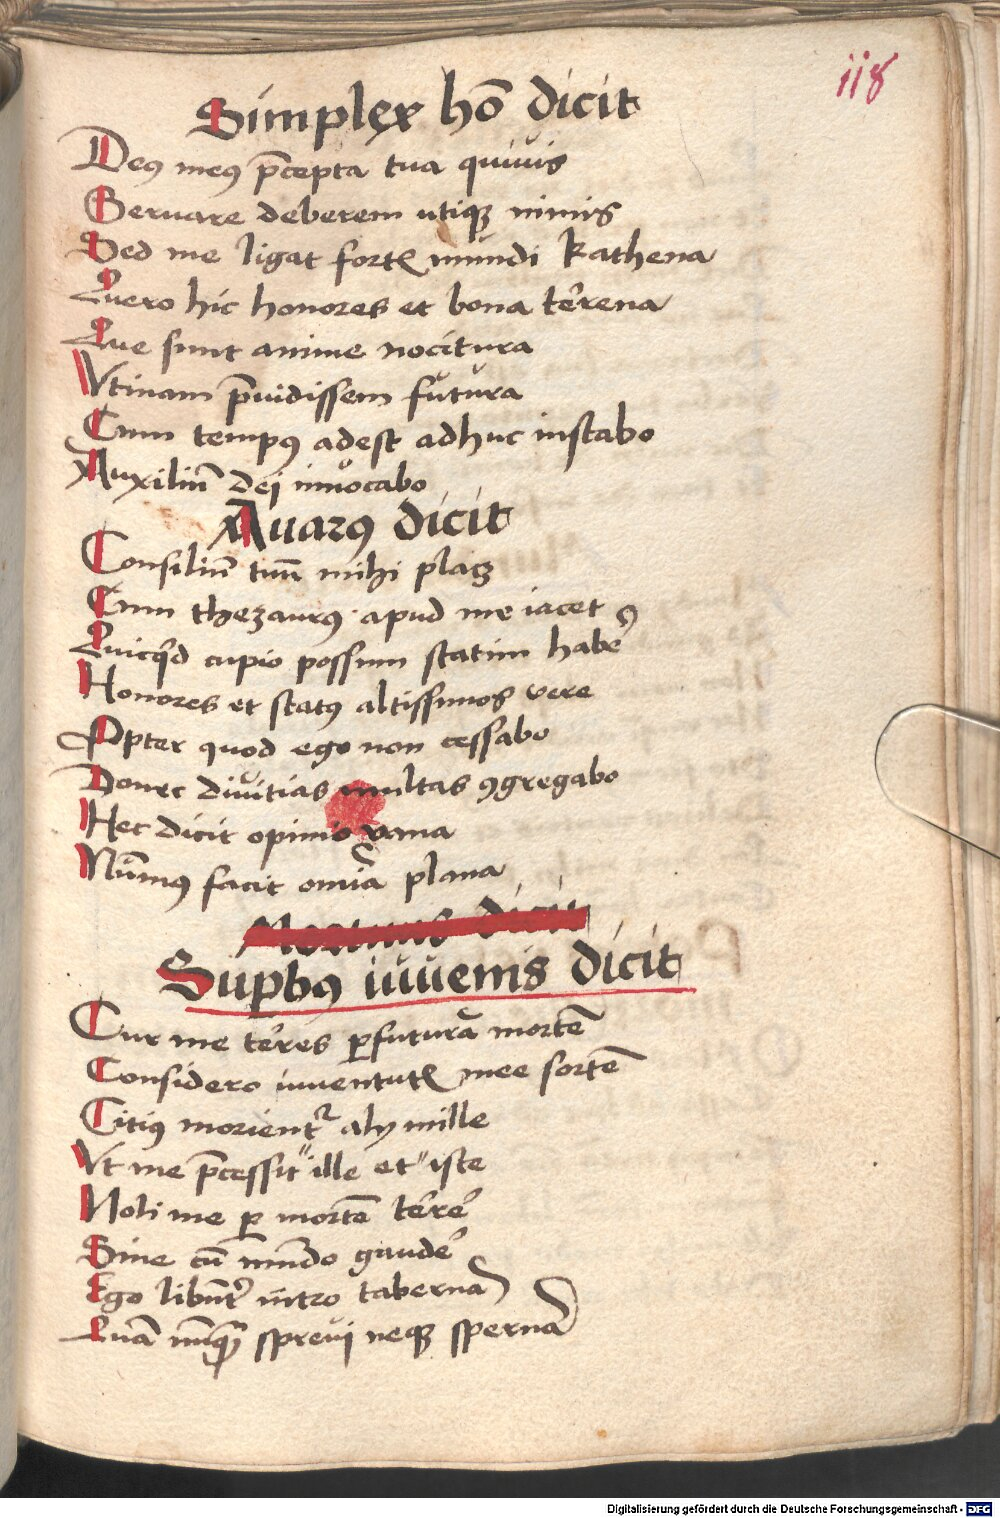 118
Simplex hō dicit
Deꝰ meꝰ p̄cepta tua quiuis
Seruare deberem utiqꝫ nimis
Sed me ligat fortē mundi kathena
Quero hic honores et bona terrena
Que sunt anime nocitura
Vtinam p̄uidissem futura
Cum tempꝰ adest adhuc instabo
Auxiliū dej inuocabo
Auarꝰ dicit
Consiliū tuū mihi placꝫ
Cum thezaurꝰ apud me iacet
Quicqͥd cupio possum statim habeꝰ
Honores et statꝰ altissimos vere
Ꝓpter quod ego non cessabo
Donec diuitias multas ꝯgregabo
Hec dicit opinio vana
Nūmꝰ facit omīa plana
Mortuus dicit
Supbꝰ iuuenis dicit
Cur me terres ꝑ futurā mortē
Considero iuuentutē mee sortē
Citiꝰ morientʳ alij mille
Vt me p̄cessit" ille et" iste
Noli me ꝑ mortē terrē
Sine cū mūdo gaudē
Ego libn̄tͥ intro tabernā
Quā nūqᷓ spreui neqꝫ spernā
Digitalisierung gefördert durch die Deutsche Forschungsgemeinschaft - DFG